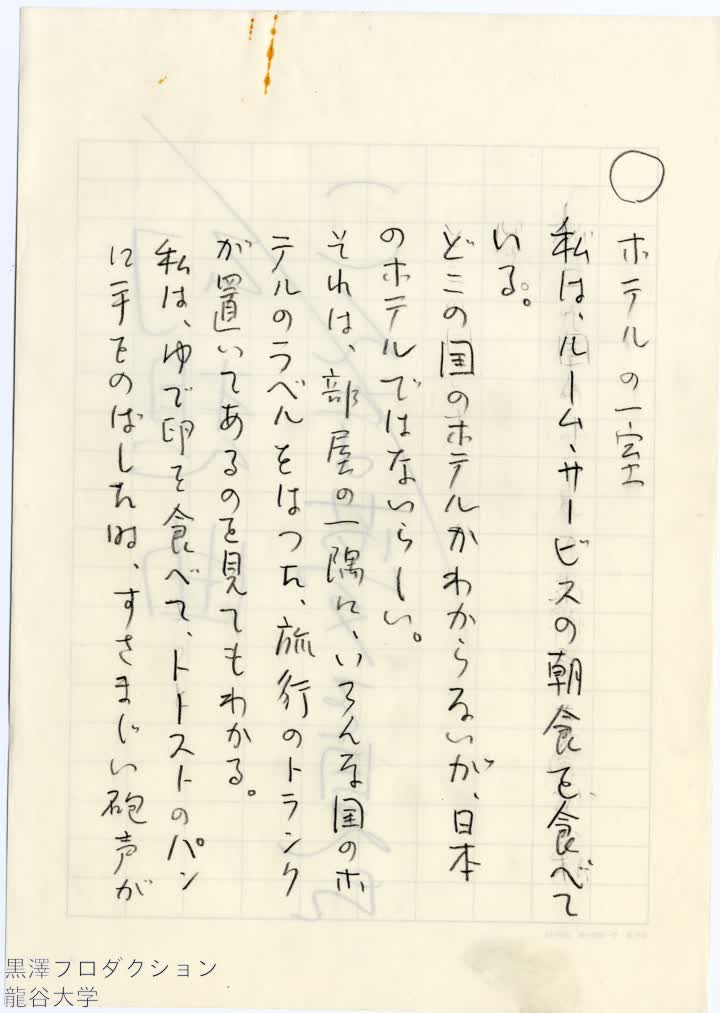 ○
ホテルの一室
私は、ルーム・サービスの朝食を食べて
いる。
どこの国のホテルかわからないが、日本
のホテルではないらしい。
それは、部屋の一隅に、いろんな国のホ
テルのラベルをはつた、旅行のトランク
が置いてあるのを見てもわかる。
私は、ゆで卵を食べて、トーストのパン
に手をのばした時、すさまじい砲声が
黒澤プロダクション
龍谷大学